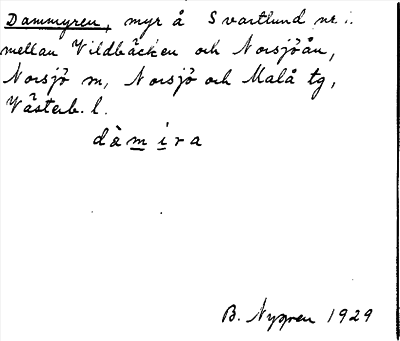 Dammyren, myr å Svartlund nr 1.
mellan Vildbäcken och Norsjöån,
Norsjö m, Norsjö och Malå tg,
Västerb. l.
dàmira
B. Nygren 1929